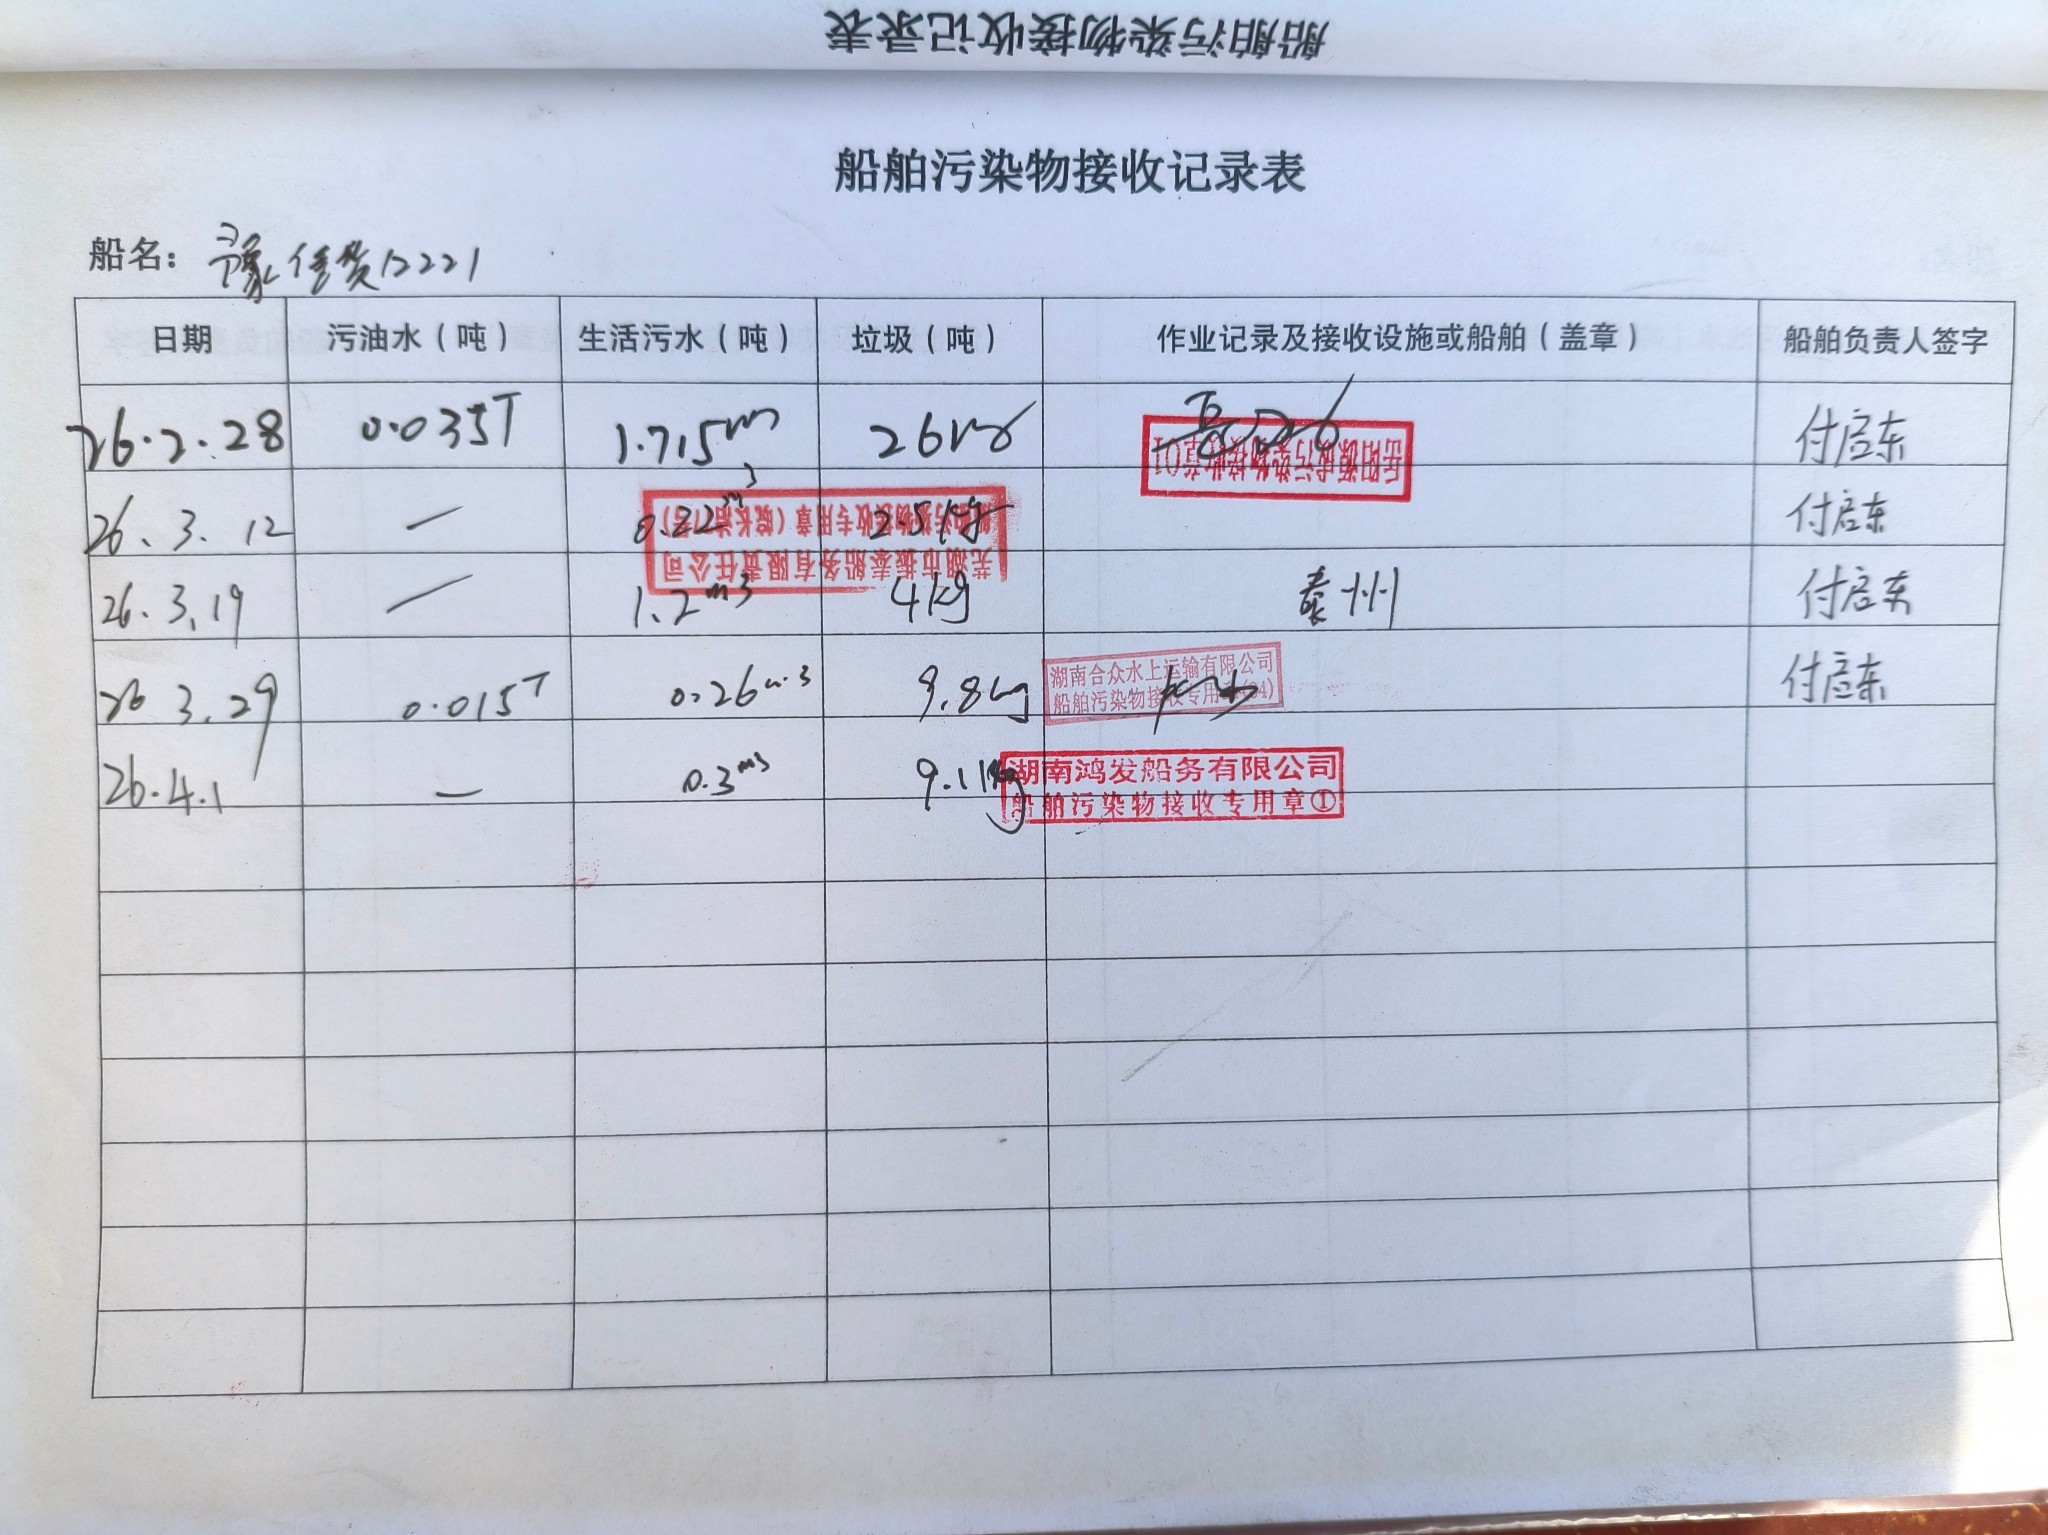 船舶污染物接收记录表
船舶污染物接收记录表
船名：豫信货12221
日期 污油水（吨） 生活污水（吨） 垃圾（吨） 作业记录及接收设施或船舶（盖章） 船舶负责人签字
26.2.28 0.035T 1.715m³ 26kg 付启东
26.3.12 — 0.22m³ 2.5kg 付启东
芜湖市振泰船务有限责任公司
26.3.19 — 1.2m3 4kg 泰州 付启东
26 3.29 0.015T 0.26m3 9.8kg 付启东
湖南合众水上运输有限公司
船舶污染物接收专用章(04)
26.4.1 — 0.3m3 9.11kg
湖南鸿发船务有限公司
船舶污染物接收专用章①